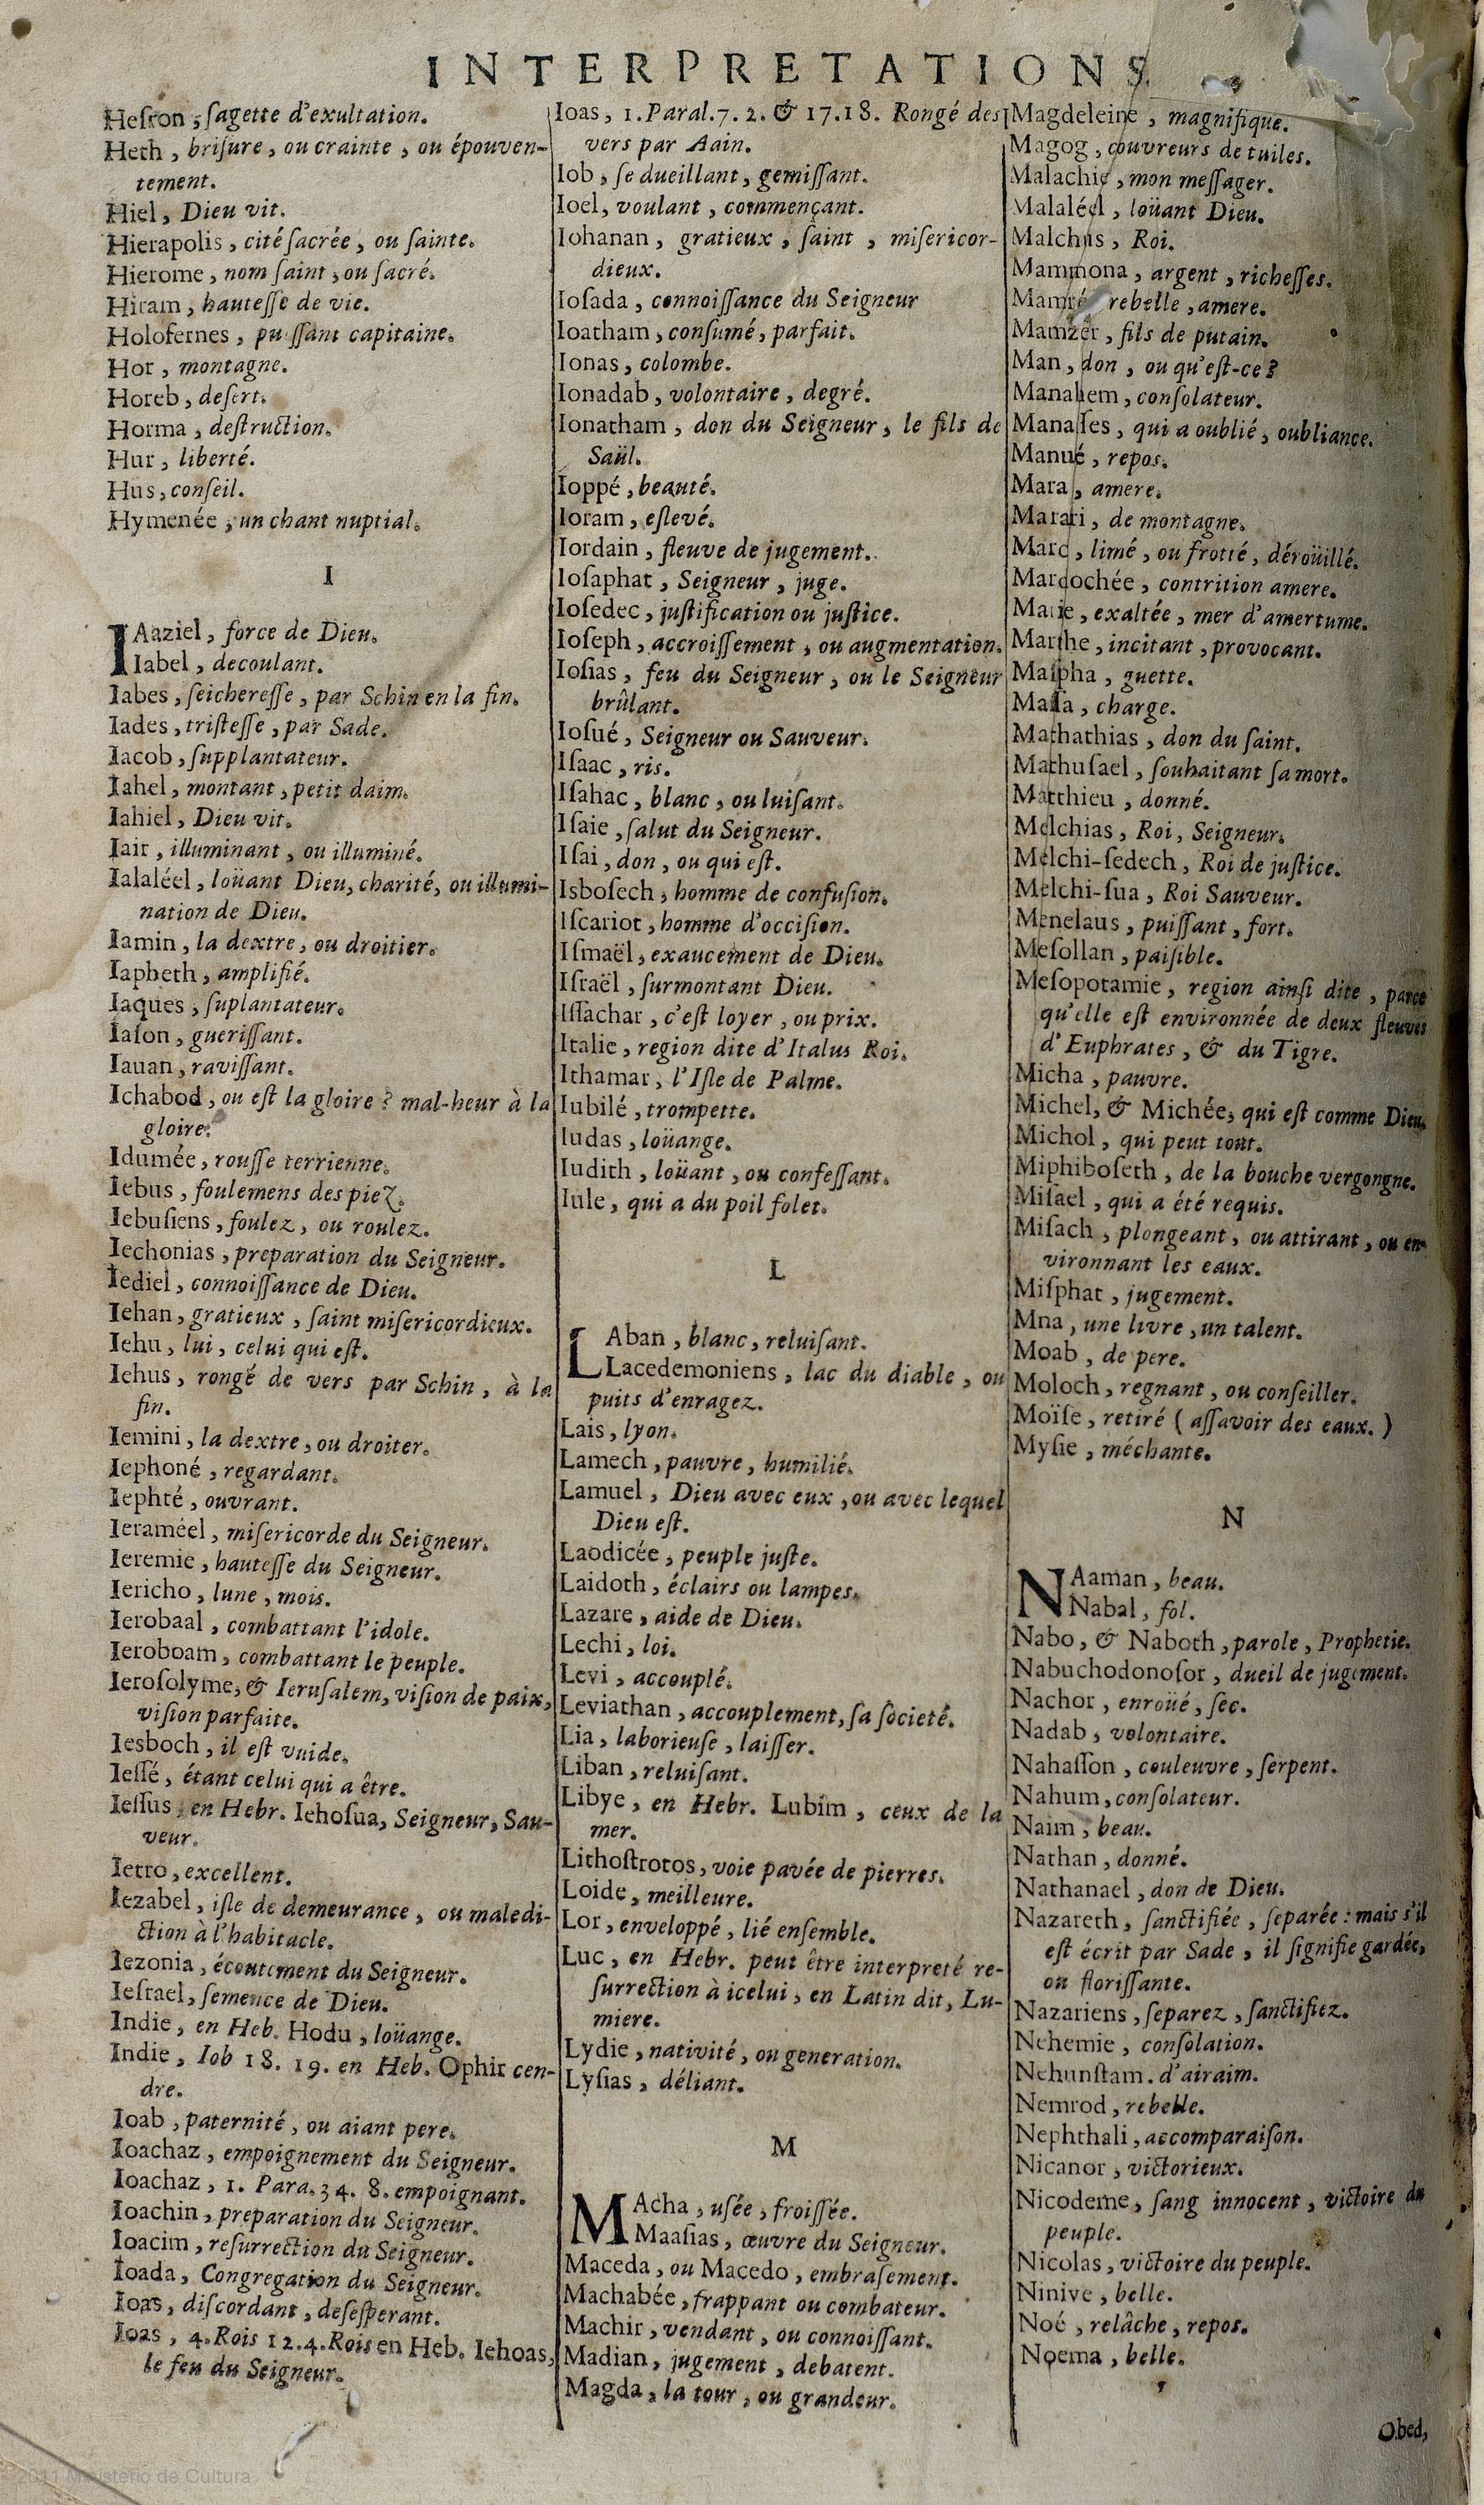 INTERPRETATIONS
Heſron, ſagette d'exultation.
Heth, briſure, ou crainte, ou épouven-
tement.
Hiel, Dieu vit.
Hierapolis, cité ſacrée, ou ſainte.
Hierome, nom ſaint, ou ſacré.
Hiram, hauteſſe de vie.
Holofernes, puſſant capitaine.
Hor, montagne.
Horeb, deſert.
Horma, deſtruction.
Hur, liberté.
Hus, conſeil.
Hymenée, un chant nuptial.
I
IAaziel, force de Dieu.
Iabel, decoulant.
Iabes, ſeichereſſe, par Schin en la fin.
Iades, triſteſſe, par Sade.
Iacob, ſupplantateur.
Iahel, montant, petit daim.
Iahiel, Dieu vit.
Iair, illuminant, ou illuminé.
Ialaléel, loüant Dieu, charité, ou illumi-
nation de Dieu.
Iamin, la dextre, ou droitier.
Iapheth, amplifié.
Iaques, ſuplantateur.
Iaſon, gueriſſant.
Iauan, raviſſant.
Ichabod, ou eſt la gloire? mal-heur à la
gloire.
Idumée, rouſſe terrienne.
Iebus, foulemens des piez.
Iebuſiens, foulez, ou roulez.
Iechonias, preparation du Seigneur.
Iediel, connoiſſance de Dieu.
Iehan, gratieux, ſaint miſericordieux.
Iehu, lui, celui qui eſt.
Iehus, rongé de vers par Schin, à la
fin.
Iemini, la dextre, ou droiter.
Iephoné, regardant.
Iephté, ouvrant.
Ieraméel, miſericorde du Seigneur.
Ieremie, hauteſſe du Seigneur.
Iericho, lune, mois.
Ierobaal, combattant l'idole.
Ieroboam, combattant le peuple.
Ieroſolyme, & Ieruſalem, viſion de paix,
viſion parfaite.
Iesboch, il eſt vuide.
Ieſſé, étant celui qui a être.
Ieſſus, en Hebr. Iehoſua, Seigneur, Sau-
veur.
Ietro, excellent.
Iezabel, iſle de demeurance, ou maledi-
ction à l'habitacle.
Iezonia, écoutement du Seigneur.
Ieſrael, ſemence de Dieu.
Indie, en Heb. Hodu, loüange.
Indie, Iob 18. 19. en Heb. Ophir cen-
dre.
Ioab, paternité, ou aiant pere.
Ioachaz, empoignement du Seigneur.
Ioachaz, 1. Para. 34. 8. empoignant.
Ioachin, preparation du Seigneur.
Ioacim, reſurrection du Seigneur.
Ioada, Congregation du Seigneur.
Ioas, diſcordant, deſeſperant.
Ioas, 4. Rois 12.4. Rois en Heb. Iehoas,
le feu du Seigneur.
Ioas, 1. Paral. 7. 2. & 17.18. Rongé des
vers par Aain.
Iob, ſe dueillant, gemiſſant.
Ioel, voulant, commençant.
Iohanan, gratieux, ſaint, miſericor-
dieux.
Ioſada, connoiſſance du Seigneur
Ioatham, conſumé, parfait.
Ionas, colombe.
Ionadab, volontaire, degré.
Ionatham, don du Seigneur, le fils de
Saül.
Ioppé, beauté.
Ioram, eſlevé.
Iordain, fleuve de jugement.
Ioſaphat, Seigneur, juge.
Ioſedec, juſtification ou juſtice.
Ioſeph, accroiſſement, ou augmentation.
Ioſias, feu du Seigneur, ou le Seigneur
brûlant.
Ioſué, Seigneur ou Sauveur.
Iſaac, ris.
Iſahac, blanc, ou luiſant.
Iſaie, ſalut du Seigneur.
Iſai, don, ou qui eſt.
Isboſech, homme de confuſion.
Iſcariot, homme d'occiſion.
Iſmaël, exaucement de Dieu.
Iſraël, ſurmontant Dieu.
Iſſachar, c'eſt loyer, ou prix.
Italie, region dite d'Italus Roi.
Ithamar, l'Iſle de Palme.
Iubilé, trompette.
Iudas, loüange.
Iudith, loüant, ou confeſſant.
Iule, qui a du poil folet.
L
LAban, blanc, reluiſant.
Lacedemoniens, lac du diable, ou
puits d'enragez.
Lais, lyon.
Lamech, pauvre, humilié.
Lamuel, Dieu avec eux, ou avec lequel
Dieu eſt.
Laodicée, peuple juſte.
Laidoth, éclairs ou lampes.
Lazare, aide de Dieu.
Lechi, loi.
Levi, accouplé.
Leviathan, accouplement, ſa ſocieté.
Lia, laborieuſe, laiſſer.
Liban, reluiſant.
Libye, en Hebr. Lubim, ceux de la
mer.
Lithoſtrotos, voie pavée de pierres.
Loide, meilleure.
Lor, enveloppé, lié enſemble.
Luc, en Hebr. peut être interpreté re-
ſurrection à icelui, en Latin dit, Lu-
miere.
Lydie, nativité, ou generation.
Lyſias, déliant.
M
MAcha, uſée, froiſſée.
Maaſias, œuvre du Seigneur.
Maceda, ou Macedo, embraſement.
Machabée, frappant ou combateur.
Machir, vendant, ou connoiſſant.
Madian, jugement, debatent.
Magda, la tour, ou grandeur.
Magdeleine, magnifique.
Magog, couvreurs de tuiles.
Malachie, mon meſſager.
Malaléel, loüant Dieu.
Malchus, Roi.
Mammona, argent, richeſſes.
Mamré rebelle, amere.
Mamzer, fils de putain.
Man, don, ou qu'eſt-ce?
Manahem, conſolateur.
Manaſſes, qui a oublié, oubliance.
Manué, repos.
Mara, amere.
Marari, de montagne.
Marc, limé, ou frotté, déroüillé.
Mardochée, contrition amere.
Marie, exaltée, mer d'amertume.
Marthe, incitant, provocant.
Maſpha, guette.
Maſſa, charge.
Mathathias, don du ſaint.
Mathuſael, ſouhaitant ſa mort.
Matthieu, donné.
Melchias, Roi, Seigneur.
Melchi-ſedech, Roi de juſtice.
Melchi-ſua, Roi Sauveur.
Menelaus, puiſſant, fort.
Meſollan, paiſible.
Meſopotamie, region ainſi dite, parce
qu'elle eſt environnée de deux fleuves
d'Euphrates, & du Tigre.
Micha, pauvre.
Michel, & Michée, qui eſt comme Dieu.
Michol, qui peut tout.
Miphiboſeth, de la bouche vergongne.
Miſael, qui a été requis.
Miſach, plongeant, ou attirant, ou en-
vironnant les eaux.
Miſphat, jugement.
Mna, une livre, un talent.
Moab, de pere.
Moloch, regnant, ou conſeiller.
Moïſe, retiré (aſſavoir des eaux.)
Myſie, méchante.
N
NAaman, beau.
Nabal, fol.
Nabo, & Naboth, parole, Prophetie.
Nabuchodonoſor, dueil de jugement.
Nachor, enroüé, ſec.
Nadab, volontaire.
Nahaſſon, couleuvre, ſerpent.
Nahum, conſolateur.
Naim, beau.
Nathan, donné.
Nathanael, don de Dieu.
Nazareth, ſanctifiée, ſeparée: mais s'il
eſt écrit par Sade, il ſignifie gardée,
ou floriſſante.
Nazariens, ſeparez, ſanctifiez.
Nehemie, conſolation.
Nehunſtam. d'airaim.
Nemrod, rebelle.
Nephthali, accomparaiſon.
Nicanor, victorieux.
Nicodeme, ſang innocent, victoire du
peuple.
Nicolas, victoire du peuple.
Ninive, belle.
Noé, relâche, repos.
Noema, belle.
Obed,
2011 Ministerio de Cultura